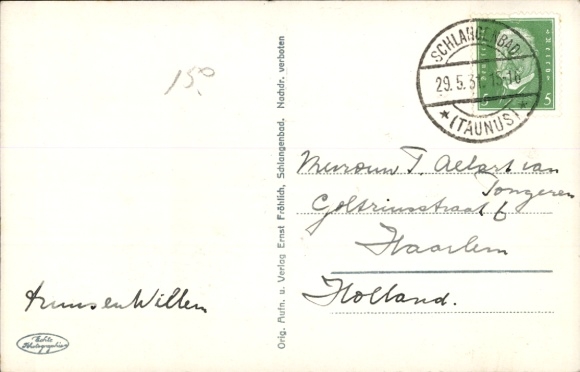 15.⁰
SCHLANGENBAD
29.5.31. 15-16
* (TAUNUS) *
5
5
Orig. Aufn. u. Verlag Ernst Fröhlich, Schlangenbad. Nachdr. verboten
Mevrouw T. Allart van
Tongeren
Goltziusstraat 6
Haarlem
Holland.
en Willem
Echte
Photographie